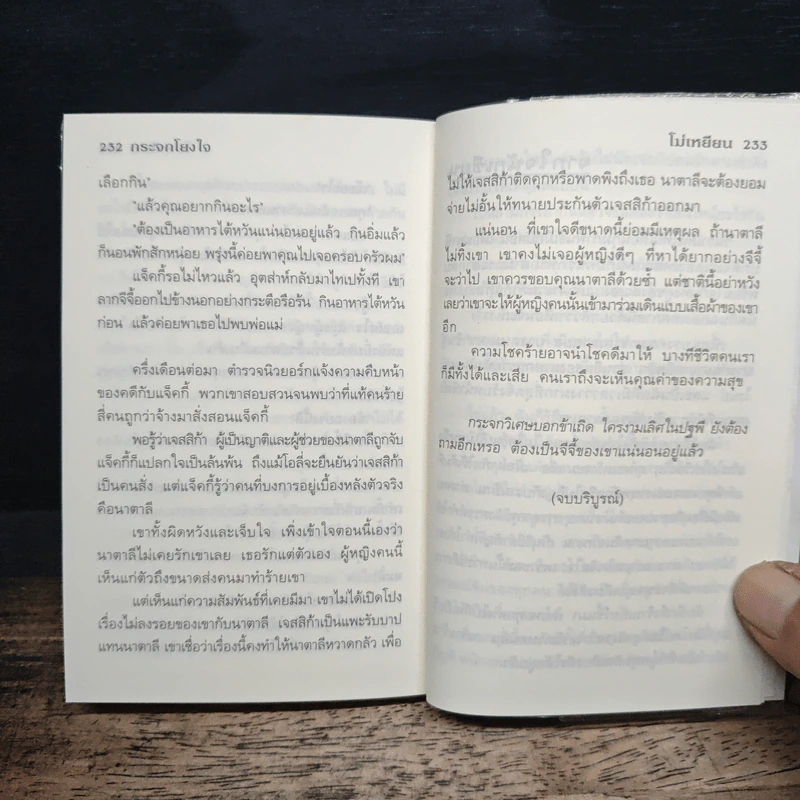 232 กระจกโยงใจ
เลือกกิน"
"แล้วคุณอยากกินอะไร"
"ต้องเป็นอาหารไต้หวันแน่นอนอยู่แล้ว กินอิ่มแล้ว
ก็นอนพักสักหน่อย พรุ่งนี้ค่อยพาคุณไปเจอครอบครัวผม"
แจ็คกี้รอไม่ไหวแล้ว อุตส่าห์กลับมาไทเปทั้งที เขา
ลากจีจี้ออกไปข้างนอกอย่างกระตือรือร้น กินอาหารไต้หวัน
ก่อน แล้วค่อยพาเธอไปพบพ่อแม่
ครึ่งเดือนต่อมา ตำรวจนิวยอร์กแจ้งความคืบหน้า
ของคดีกับแจ็คกี้ พวกเขาสอบสวนจนพบว่าที่แท้คนร้าย
สี่คนถูกว่าจ้างมาสั่งสอนแจ็คกี้
พอรู้ว่าเจสสิก้า ผู้เป็นญาติและผู้ช่วยของนาตาลีถูกจับ
แจ็คกี้ก็แปลกใจเป็นล้นพ้น ถึงแม้โอลี่จะยืนยันว่าเจสสิก้า
เป็นคนสั่ง แต่แจ็คกี้รู้ว่าคนที่บงการอยู่เบื้องหลังตัวจริง
คือนาตาลี
เขาทั้งผิดหวังและเจ็บใจ เพิ่งเข้าใจตอนนี้เองว่า
นาตาลีไม่เคยรักเขาเลย เธอรักแต่ตัวเอง ผู้หญิงคนนี้
เห็นแก่ตัวถึงขนาดส่งคนมาทำร้ายเขา
แต่เห็นแก่ความสัมพันธ์ที่เคยมีมา เขาไม่ได้เปิดโปง
เรื่องไม่ลงรอยของเขากับนาตาลี เจสสิก้าเป็นแพะรับบาป
แทนนาตาลี เขาเชื่อว่าเรื่องนี้คงทำให้นาตาลีหวาดกลัว เพื่อ
โม่เหยียน 233
ไม่ให้เจสสิก้าติดคุกหรือพาดพิงถึงเธอ นาตาลีจะต้องยอม
จ่ายไม่อั้นให้ทนายประกันตัวเจสสิก้าออกมา
แน่นอน ที่เขาใจดีขนาดนี้ย่อมมีเหตุผล ถ้านาตาลี
ไม่ทิ้งเขา เขาคงไม่เจอผู้หญิงดีๆ ที่หาได้ยากอย่างจีจี้
จะว่าไป เขาควรขอบคุณนาตาลีด้วยซ้ำ แต่ชาตินี้อย่าหวัง
เลยว่าเขาจะให้ผู้หญิงคนนั้นเข้ามาร่วมเดินแบบเสื้อผ้าของเขา
อีก
ความโชคร้ายอาจนำโชคดีมาให้ บางทีชีวิตคนเรา
ก็มีทั้งได้และเสีย คนเราถึงจะเห็นคุณค่าของความสุข
กระจกวิเศษบอกข้าเถิด ใครงามเลิศในปฐพี ยังต้อง
ถามอีกเหรอ ต้องเป็นจีจี้ของเขาแน่นอนอยู่แล้ว
(จบบริบูรณ์)